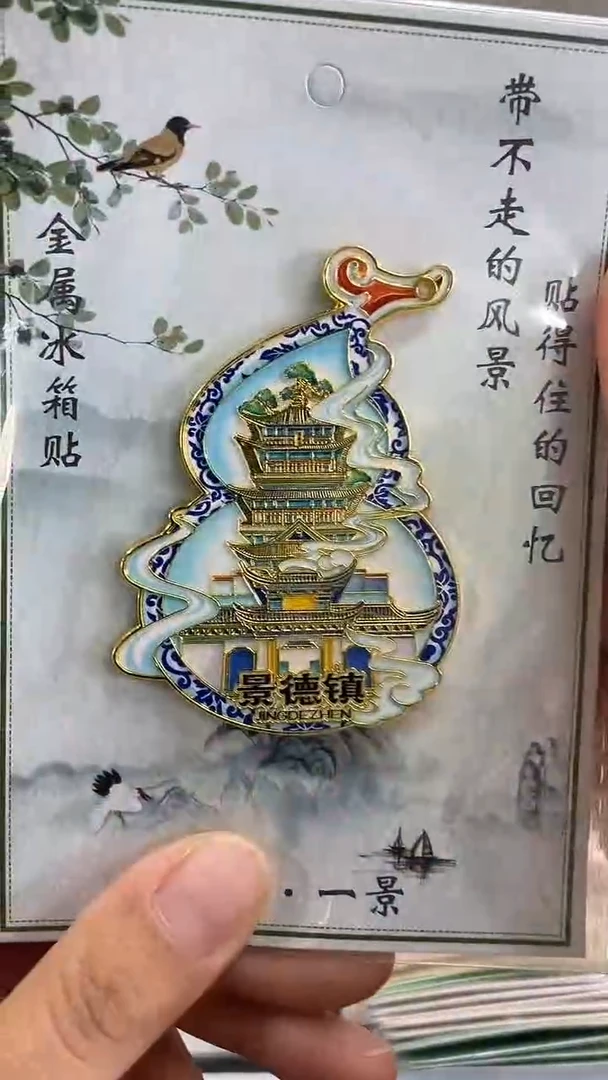 带不走的风景
贴得住的回忆
金属冰箱贴
景德镇
JINGDEZHEN
·一景